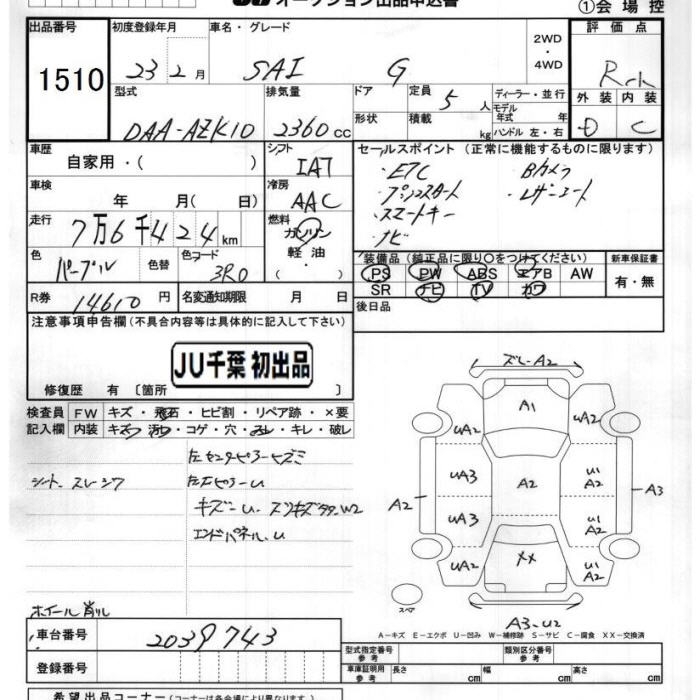 オークション出品申込書
①会場控
出品番号
1510
初度登録年月
23 2月
車名・グレード
SAI G
2WD
・
4WD
評価点
外装 内装
D C
型式
DAA-AZK10
排気量
2360 cc
ドア
形状
定員 5 人
積載 kg
ディーラー・並行
モデル
年式 年
ハンドル 左・右
車歴
自家用・( )
シフト
IAT
セールスポイント (正常に機能するものに限ります)
・ETC ・Bカメラ
・プッシュスタート ・レザーシート
・スマートキー
・ナビ
車検
年 月(日)
冷房
AAC
走行
7万6千424km
燃料
ガソリン
軽油・
( )
色
パープル
色替
色コード
3R0
装備品 (純正品に限り○をつけてください)
PS PW ABS エアB AW
SR ナビ TV カワ
新車保証書
有・無
R券 14610 円
名変通知期限 月 日
後日品
注意事項申告欄 (不具合内容等は具体的に記入して下さい)
JU千葉 初出品
修復歴 有 〔箇所 〕
検査員 FW キズ・飛石・ヒビ割・リペア跡・×要
記入欄 内装 キズ・汚れ・コゲ・穴・スレ・キレ・破レ
左センターピラーヒズミ
シート スレ シワ
エンドパネル.U
ホイール削レ
ズレ-A2
A1
UA2 UA2
UA3 A2 U1 A2
A2 A3
UA3 U1 A2
UA2 XX U1 A2
スペア
A3-U2
A－キズ E－エクボ U－凹み W－補修跡 S－サビ C－腐食 XX－交換済
車台番号 2039743
型式指定番号 参考
類別区分番号 参考
登録番号
車庫証明用 参考
長さ cm 幅 cm 高さ cm
希望出品コーナー (コーナーは各会場により異なります。